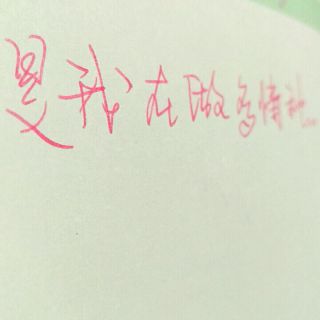 是我在做多情种…